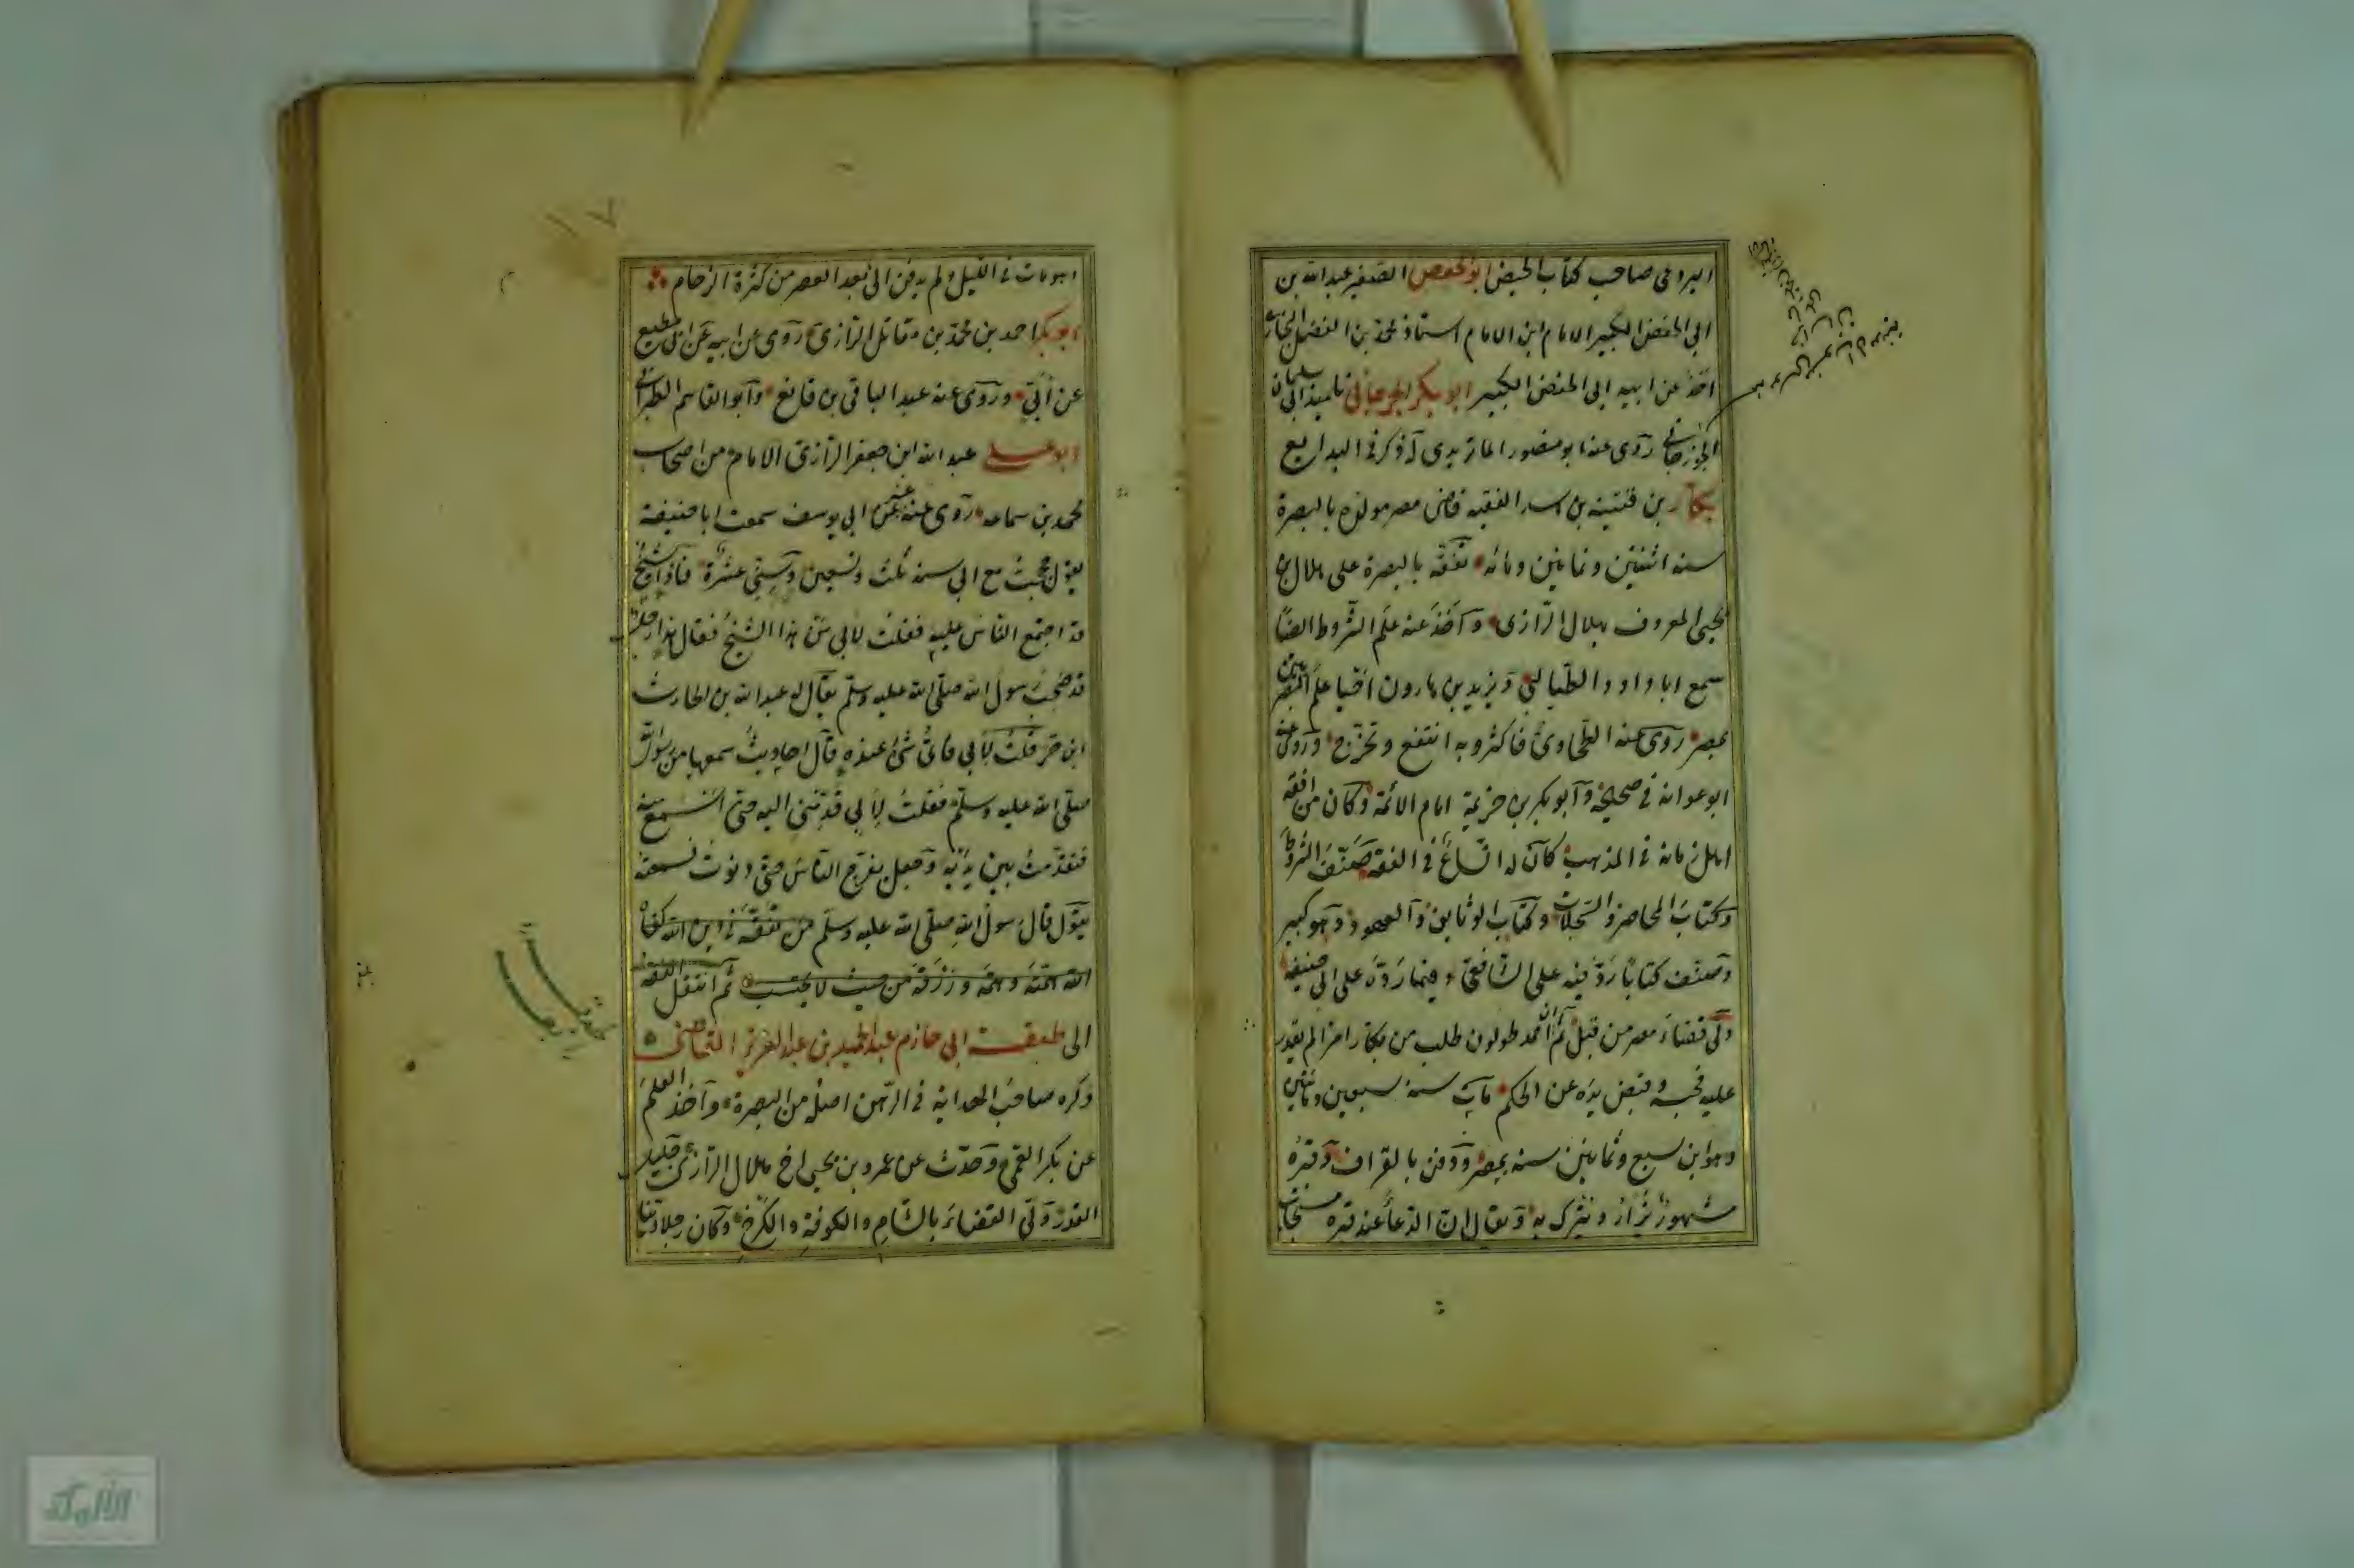 البردعي صاحب كتاب الحيض ابو الحفص الصغير عبد الله بن
ابي الحفص الكبير الامام ابن الامام استاذ محمد بن الفضل البخاري
اخذ عن ابيه ابي الحفص الكبير ابو بكر الجوزجاني تلميذ ابي سليمان
الجوزجاني روى عنه ابو منصور الماتريدي ذكر في البدايع
بكار بن قتيبة بن اسد الفقيه قاضى مصر مولده بالبصرة
سنه اثنتين وثمانين ومائه تفقه بالبصرة على هلال بن
يحيى المعروف بهلال الرازى وآخذ عنه علم الشروط ايضا
سمع ابا داود الطيالسي ويزيد بن هارون احيا علم البصريين
بمصر روى عنه الطحاوى فاكثر وبه انتفع وتخرج وروى عنه
ابو عوانه في صحيحه وابو بكر بن خزيمة امام الائمة وكان من افقه
اهل زمانه في المذهب كان له اتساع في الفقه صنف الشروط
وكتاب المحاضر والسجلات وكتاب الوثايق والعهود وهو كبير
وصنف كتابا رد فيه على الشافعي فيما رده على ابي حنيفة
ولى قضاء مصر من قبل ثم ان احمد طولون طلب من بكار امرا لم يقدر
عليه فحبسه وقبض يده عن الحكم مات سنه سبعين ومائتين
وهو ابن سبع وثمانين سنه بمصر ودفن بالقرافه وقبره
مشهور يزار ويتبرك به ويقال ان الدعاء عند قبره مستجاب
مات في الليل ولم يدفن الى بعد العصر من كثرة الزحام
ابو بكر احمد بن محمد بن مقاتل الرازى روى عن ابيه عن ابي مطيع
عن أبي وروى عنه عبد الباقى بن قانع وابو القاسم الطبراني
ابو على عبد الله ابن جعفر الرازى الامام من اصحاب
محمد بن سماعه روى عنه عن ابي يوسف سمعت ابا حنيفة
يقول حججت مع ابي سنه ثلث وتسعين وسني عشرة فاذا شيخ
قد اجتمع الناس عليه فقلت لابي من هذا الشيخ فقال هذا رجل
قد صحب رسول الله صلى الله عليه وسلم يقال له عبد الله بن الحارث
ابن جزء قلت لأبي فاي شئ عنده قال احاديث سمعها من رسول الله
صلى الله عليه وسلم فقلت لأبي قدمني اليه حتى اسمع منه
فتقدمت بين يديه وجعل يفرج الناس حتى دنوت فسمعته
يقول قال رسول الله صلى الله عليه وسلم من تفقه في دين الله كفاه
الله همه ورزقه من حيث لا يحتسب ثم انتقل الفقه
الى طبقة ابي حازم عبد الحميد بن عبد العزيز القاضى
ذكره صاحب الهداية في الرهن اصله من البصرة وآخذ العلم
عن بكر العمى وحدث عن عمرو بن يحيى اخ هلال الرازى جليل
القدر ولى القضاء بالشام والكوفة والكرخ وكان رجلا دينا